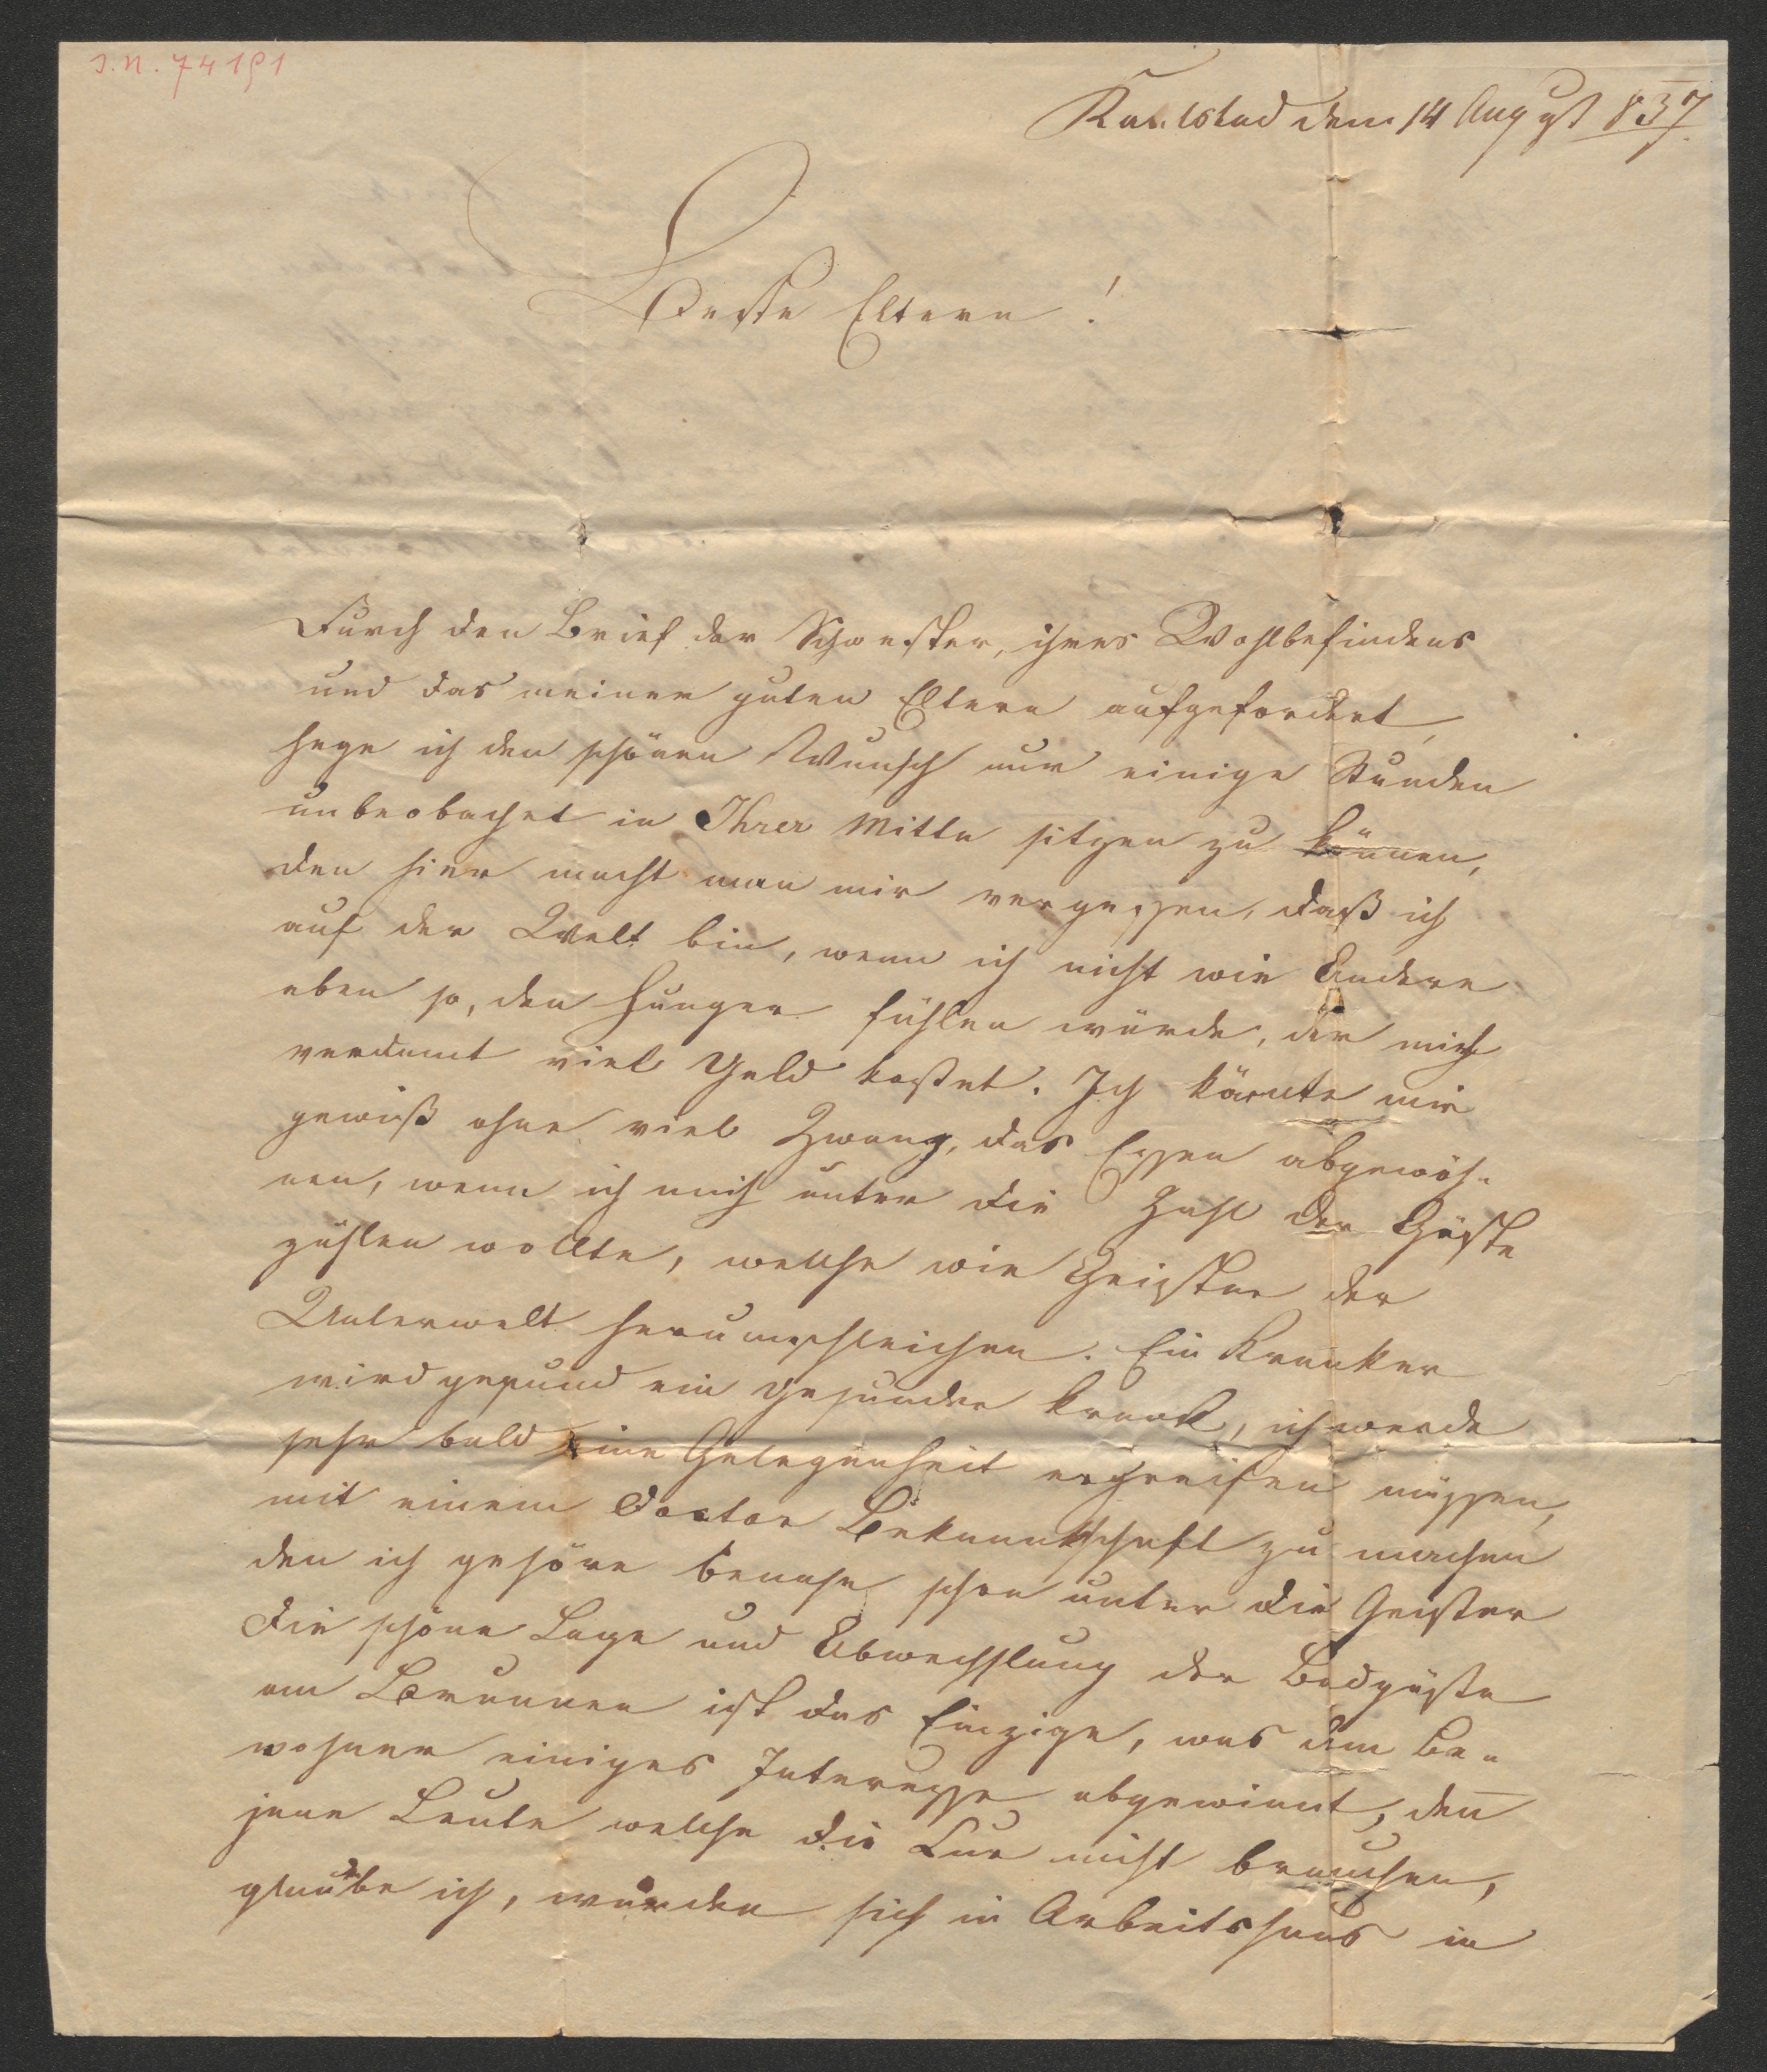 I.N. 74191
Karlsbad den 14 August 837
Beste Eltern!
Durch den Brief der Schwester, ihres Wohlbefindens
und das meiner guten Eltern aufgefordert,
hege ich den schönen Wunsch nur einige Stunden
unbeobachet in Ihrer Mitte sitzen zu können,
den hier macht man mir vergessen, daß ich
auf der Welt bin, wenn ich nicht wie Andere
eben so, den Hunger fühlen würde, der mich
verdamt viel Geld kostet. Ich könnte mir
gewiß ohne viel Zwang, das Essen abgewöh-
nen, wenn ich mich unter die Zahl der Gäste
zählen wollte, welche wie Geister der
Unterwelt herumschleichen. Ein Kranker
wird gesund ein gesunder krank, ich werde
sehr bald eine Gelegenheit ergreifen müssen,
mit einem Doctor Bekanntschaft zu machen
den ich gehöre benahe schon unter die Geister
die schöne Lage und Abwechslung der Badgäste
am Brunnen ist das Einzige, was dem Be-
wohner einiges Interesse abgewinnt, den
jene Leute welche die Cur nicht brauchen,
glaube ich, würden sich in Arbeitshaus in